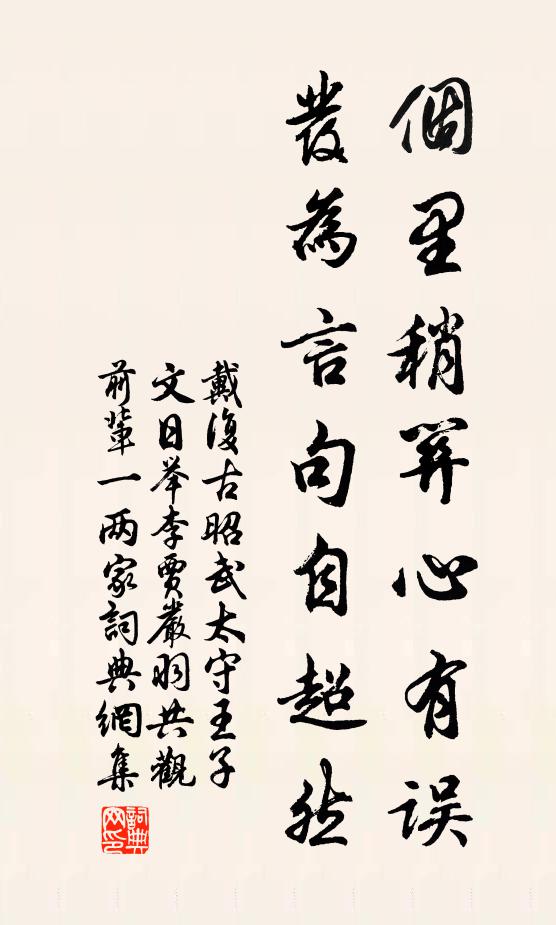 個里稍關心有误
發為言句自超然
戴復古昭武太守王子
文日举李賈嚴羽共觀
前輩一两家詞典網集
詞典网印